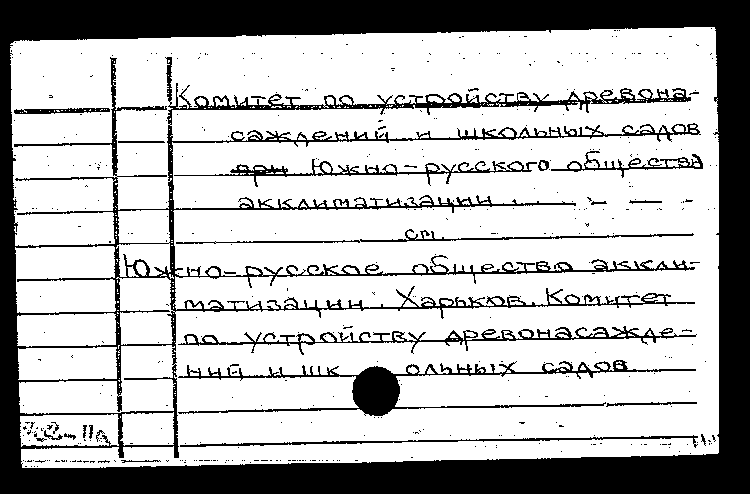 Комитет по устройству древона-
саждений и школьных садов
при Южно-русского общества
акклиматизации
см.
Южно-русское общество аккли-
матизации. Харьков. Комитет
по устройству древонасажде-
ний и школьных садов